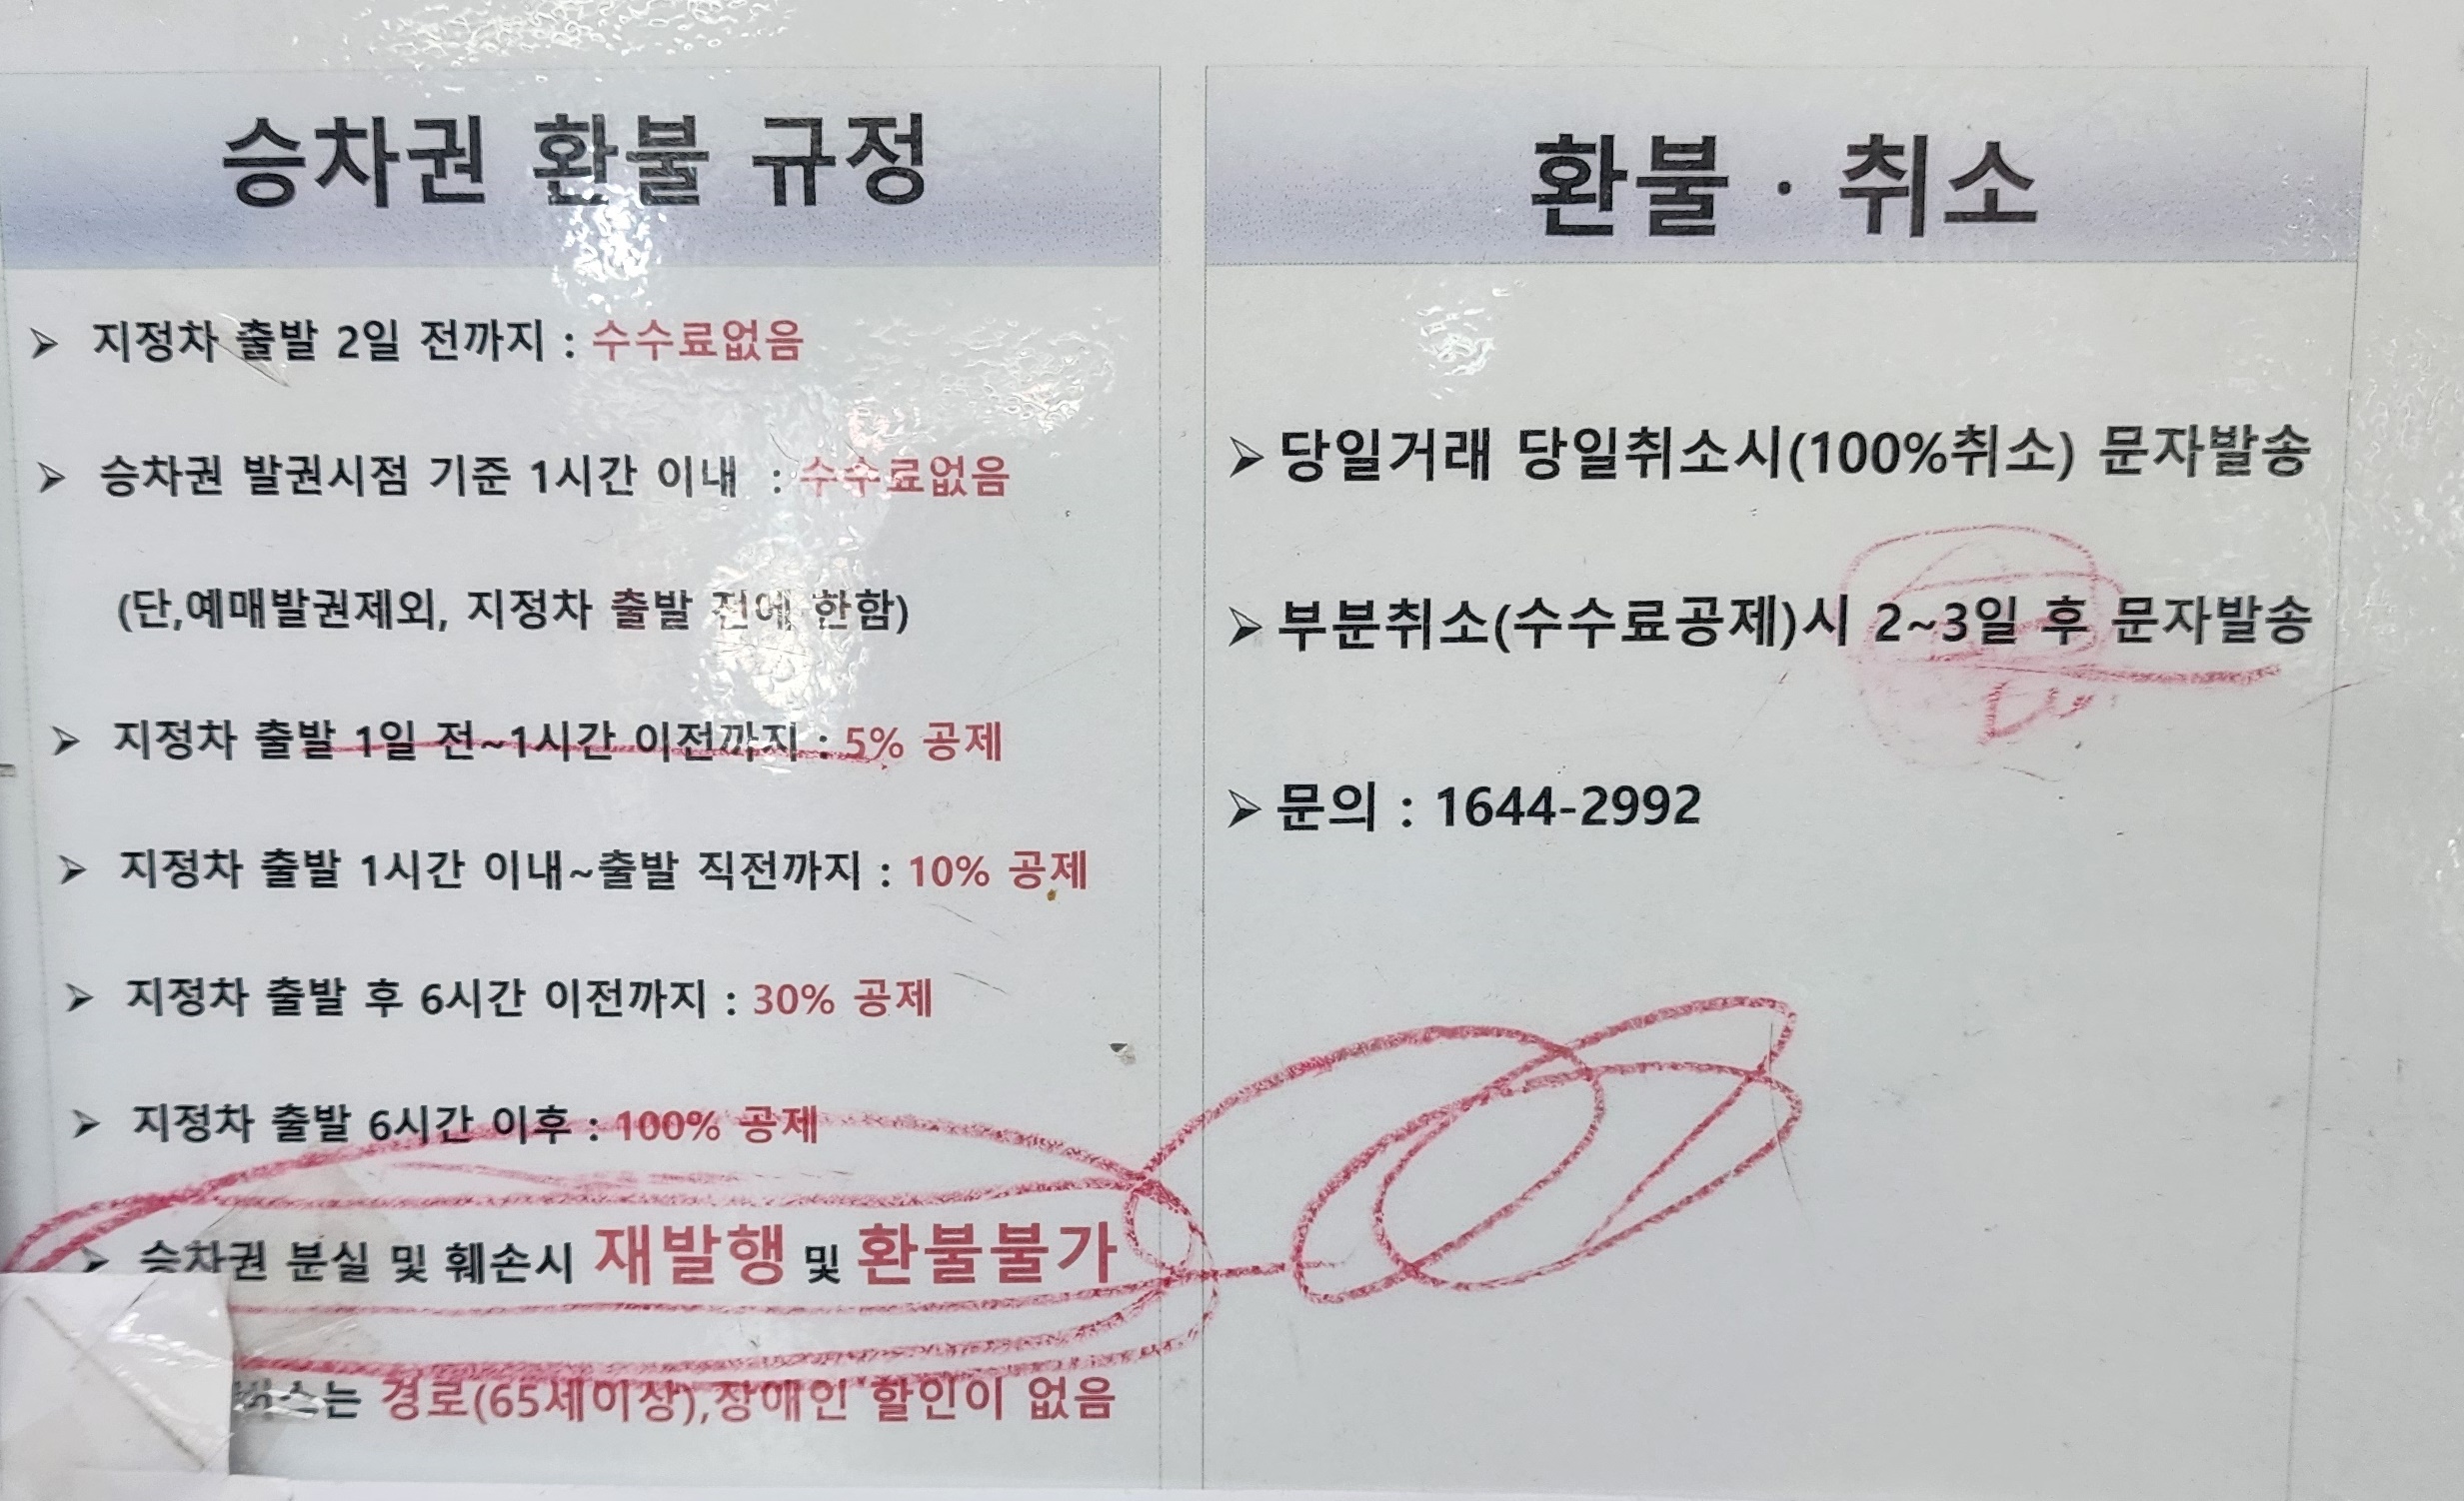 승차권 환불 규정
➢ 지정차 출발 2일 전까지 : 수수료없음
➢ 승차권 발권시점 기준 1시간 이내 : 수수료없음
(단,예매발권제외, 지정차 출발 전에 한함)
➢ 지정차 출발 1일 전~1시간 이전까지 : 5% 공제
➢ 지정차 출발 1시간 이내~출발 직전까지 : 10% 공제
➢ 지정차 출발 후 6시간 이전까지 : 30% 공제
➢ 지정차 출발 6시간 이후 : 100% 공제
➢ 승차권 분실 및 훼손시 재발행 및 환불불가
버스는 경로(65세이상),장애인 할인이 없음
환불 · 취소
➢ 당일거래 당일취소시(100%취소) 문자발송
➢ 부분취소(수수료공제)시 2~3일 후 문자발송
➢ 문의 : 1644-2992